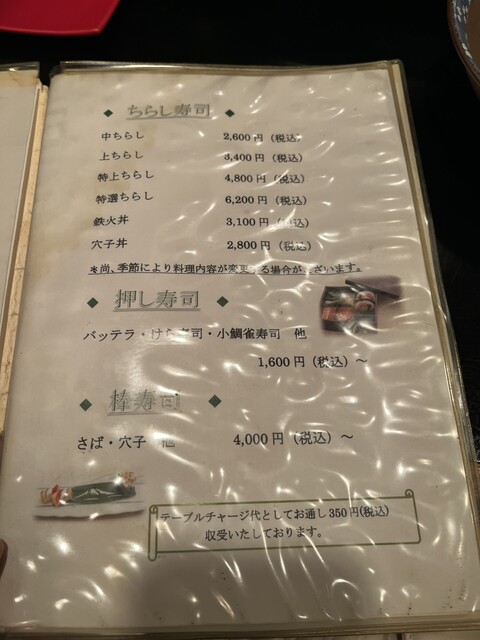 ◆ ちらし寿司 ◆
中ちらし 2,600円（税込）
上ちらし 3,400円（税込）
特上ちらし 4,800円（税込）
特選ちらし 6,200円（税込）
鉄火丼 3,100円（税込）
穴子丼 2,800円（税込）
＊尚、季節により料理内容が変更する場合がございます。
◆ 押し寿司 ◆
バッテラ・けら寿司・小鯛雀寿司 他
1,600円（税込）～
◆ 棒寿司 ◆
さば・穴子 他 4,000円（税込）～
テーブルチャージ代としてお通し350円(税込)
収受いたしております。